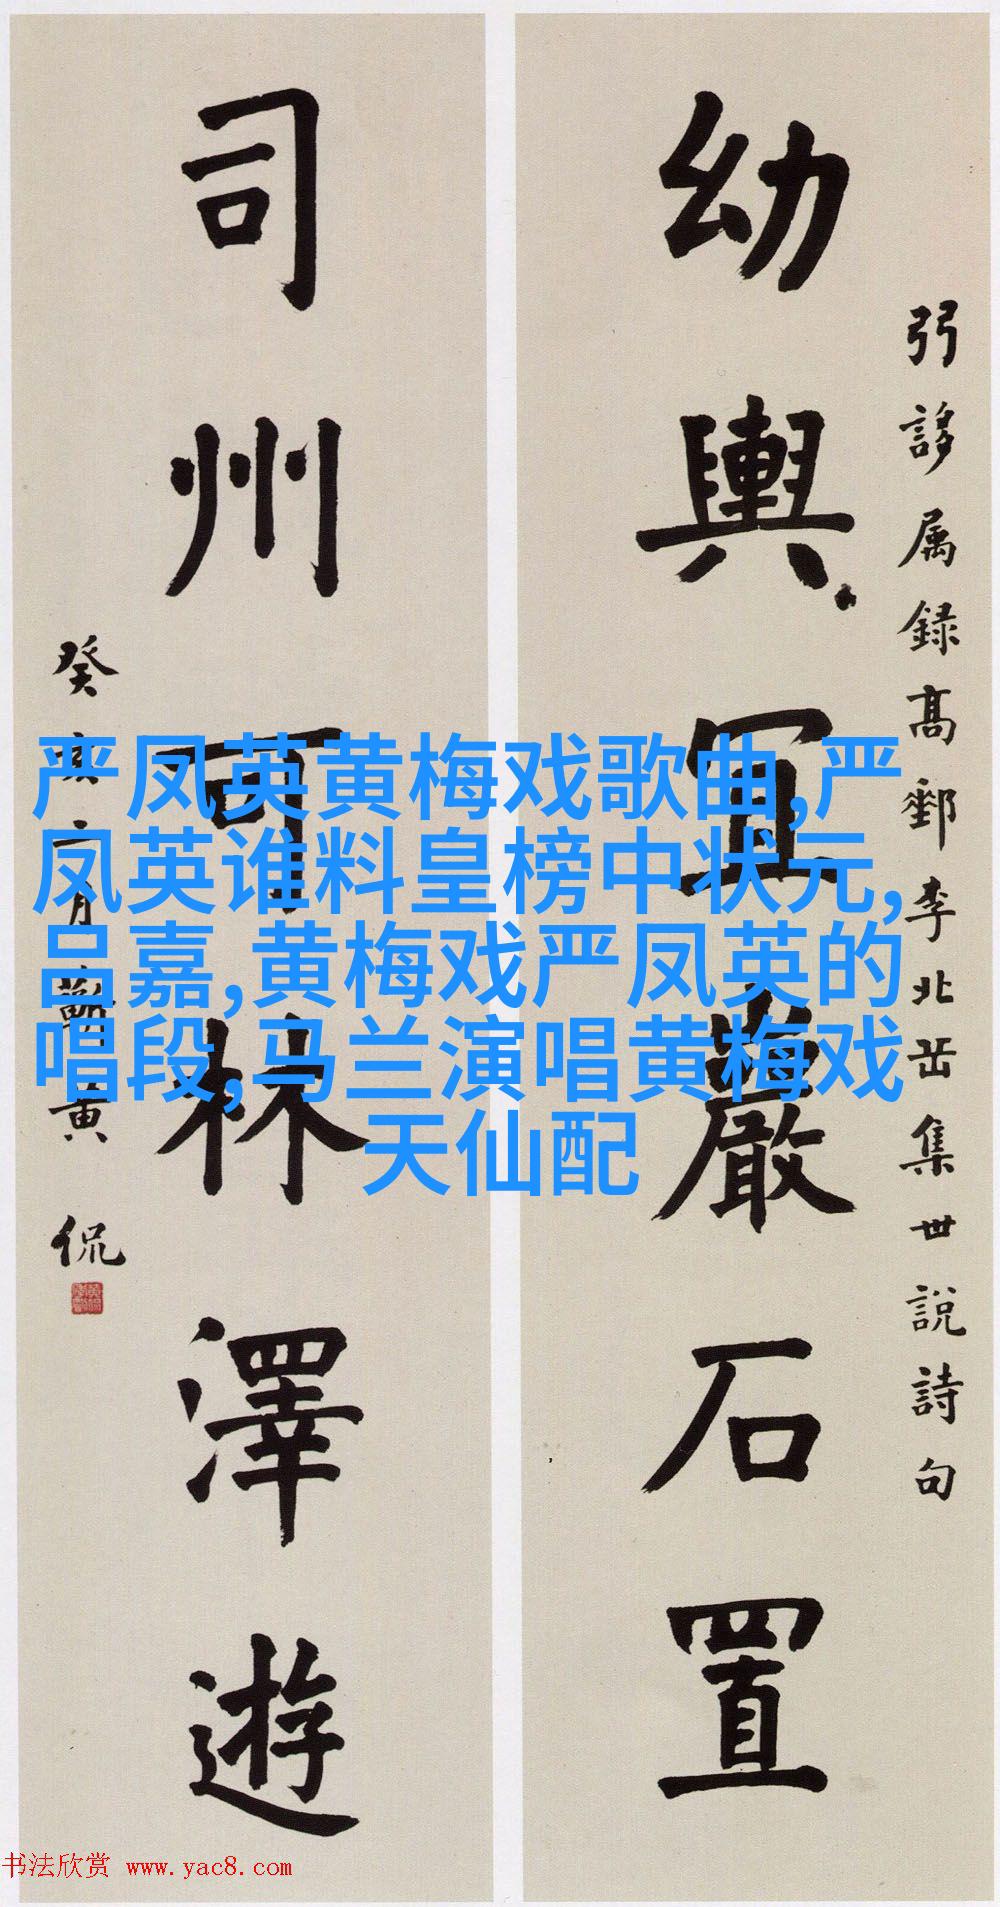 弜誃属録高郵李北岳集世說詩句
幼輿宜巖石置
司州可林澤遊
癸亥二月蘄黄侃
严凤英黄梅戏歌曲,严
凤英谁料皇榜中状元,
吕嘉,黄梅戏严凤英的
唱段,马兰演唱黄梅戏
天仙配
书法欣赏 www.yac8.com